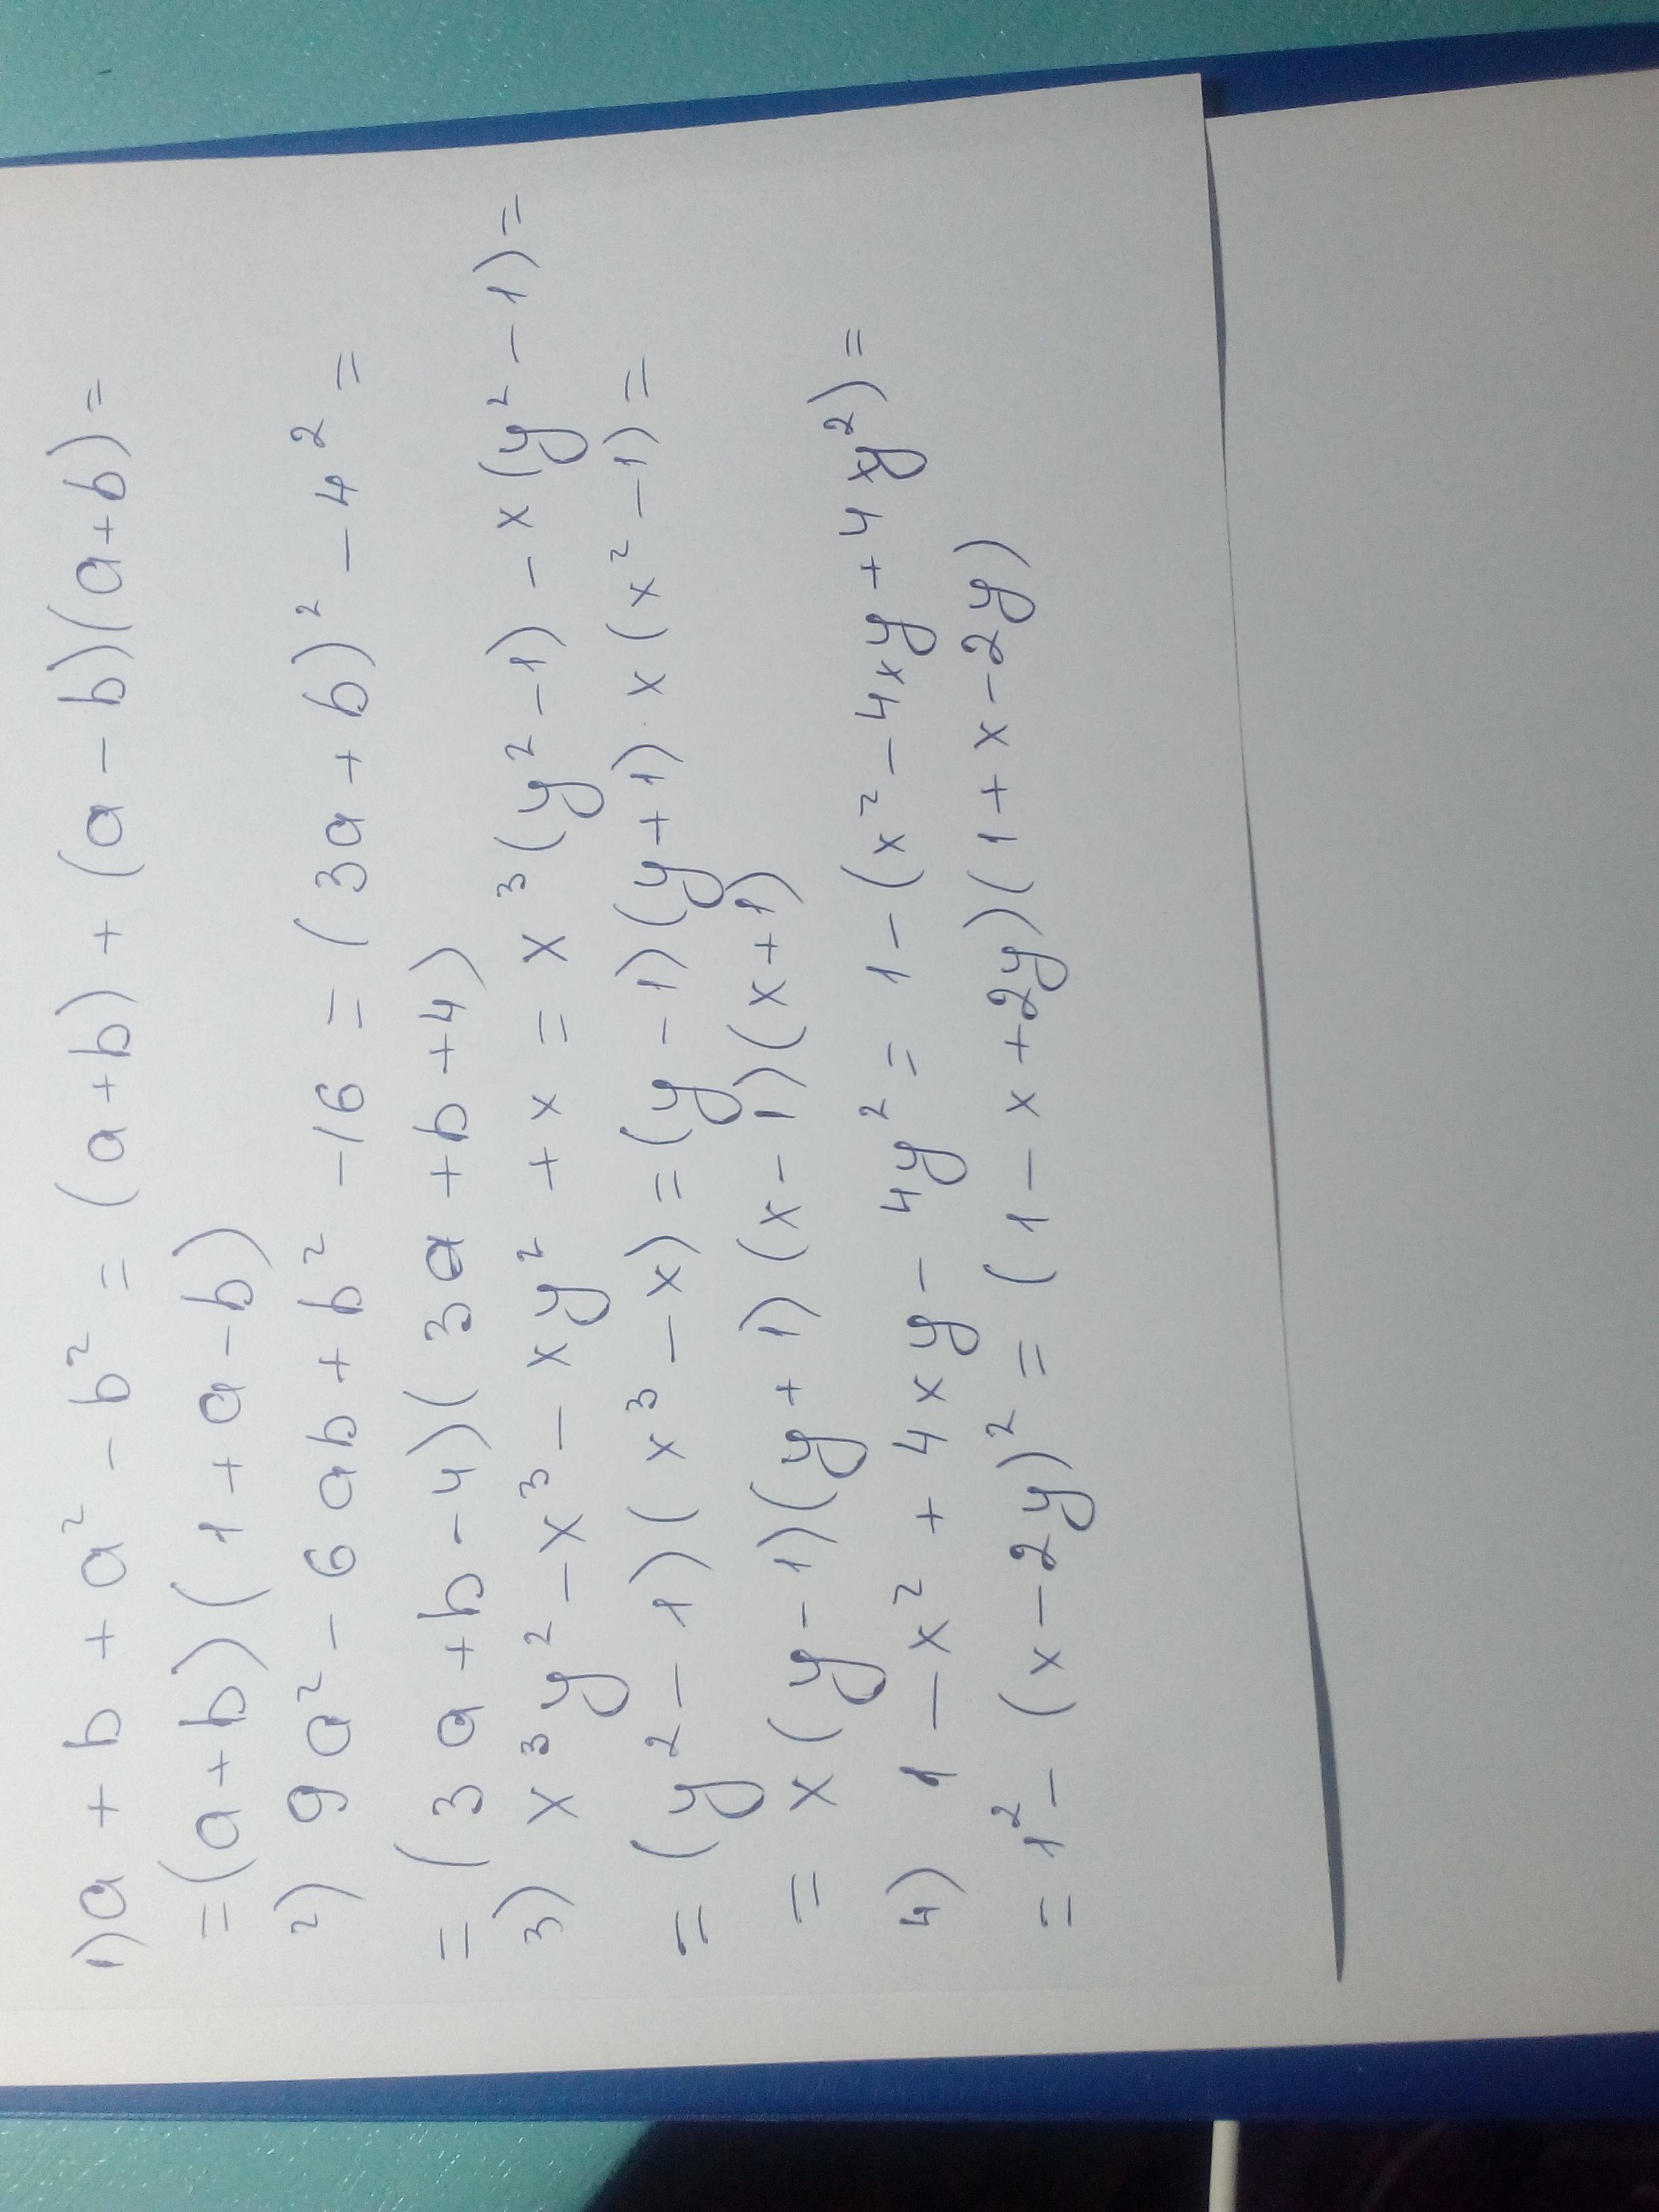 1) a + b + a² - b² = (a+b) + (a-b)(a+b) =
= (a+b)(1+a-b)
2) 9a² - 6ab + b² - 16 = (3a+b)² - 4² =
= (3a+b-4)(3a+b+4)
3) x³y² - x³ - xy² + x = x³(y²-1) - x(y²-1) =
= (y²-1)(x³-x) = (y-1)(y+1)·x(x²-1) =
= x(y-1)(y+1)(x-1)(x+1)
4) 1 - x² + 4xy - 4y² = 1 - (x² - 4xy + 4xy²) =
= 1² - (x-2y)² = (1-x+2y)(1+x-2y)